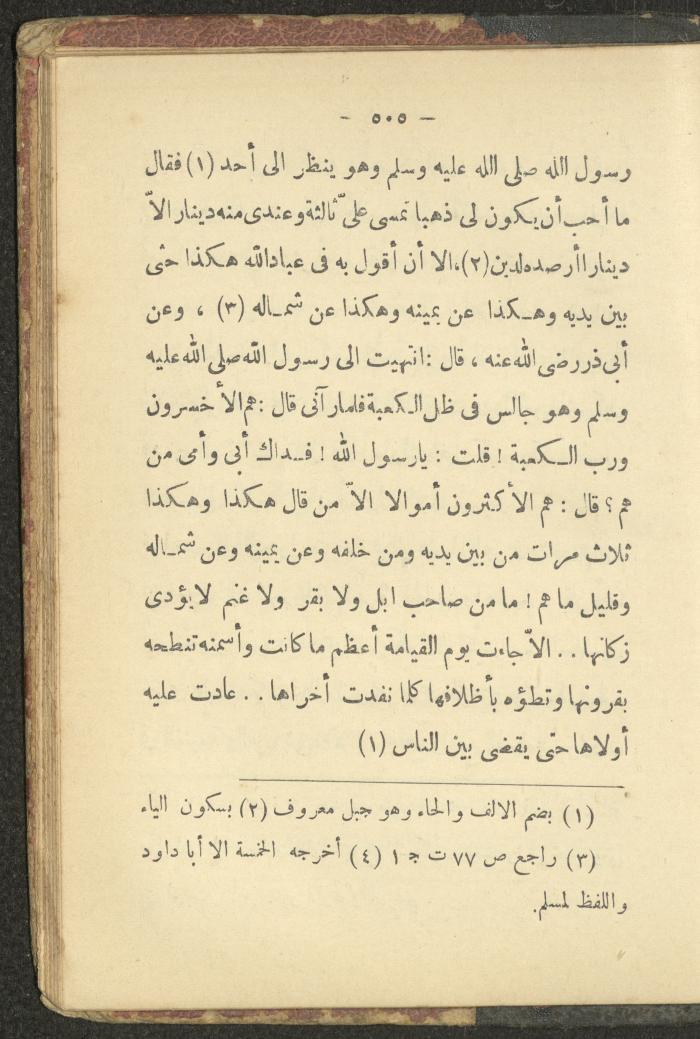 - ٥٠٥ -
رسول الله صلى الله عليه وسلم وهو ينظر الى أحد (١) فقال
ما أحب أن يكون لى ذهبا تمسى علىّ ثالثة وعندى منه دينار الاّ
دينارا أرصده لدين (٢)، الا أن أقول به فى عباد الله هكذا حثى
بين يديه وهكذا عن يمينه وهكذا عن شماله (٣) ، وعن
أبى ذر رضى الله عنه ، قال : انتهيت الى رسول الله صلى الله عليه
وسلم وهو جالس فى ظل الكعبة فلما رآنى قال : هم الأخسرون
ورب الكعبة ! قلت : يارسول الله ! فداك أبى وأمى من
هم ؟ قال : هم الأكثرون أموالا الاّ من قال هكذا وهكذا
ثلاث مرات من بين يديه ومن خلفه وعن يمينه وعن شماله
وقليل ما هم ! ما من صاحب ابل ولا بقر ولا غنم لا يؤدى
زكاتها . . الاّ جاءت يوم القيامة أعظم ما كانت وأسمنه تنطحه
بقرونها وتطؤه بأظلافها كلما نفدت أخراها . . عادت عليه
أولاها حتى يقضى بين الناس (١)
(١) بضم الالف والحاء وهو جبل معروف (٢) بسكون الياء
(٣) راجع ص ٧٧ ت ج ١ (٤) أخرجه الخمسة الا أبا داود
واللفظ لمسلم.